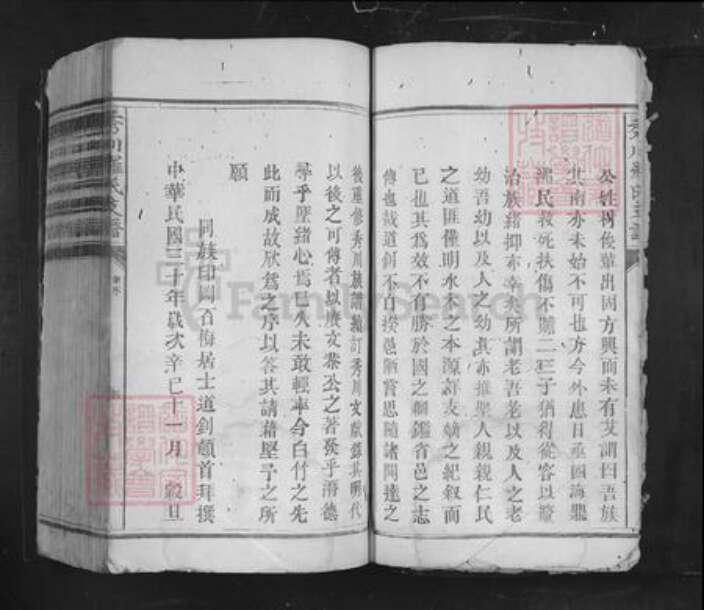 公姓 俊華出因方興而未有艾謂曰吾族
其南亦未始不可也方今外患日亟四海鼎
沸民救死扶傷不贍二三子猶得從容以
治族緒抑亦幸矣所謂老吾老以及人之老
幼吾幼以及人之幼其亦推聖人親親仁民
之道匪僅明水木之本源詳支嫡之紀叙而
已也其為效不有勝於國之 鑑省邑之志
傳也哉道釗不 揆 陋嘗思隨諸聞達之
後重修秀川族譜續訂秀川文獻錄其明代
以後之可傳者以賡文恭公之著發乎潛德
尋乎墜緒心焉已久未敢輕率今白竹之先
此而成故欣為之序以答其請藉堅予之所
願
同族印岡石梅居士道釗頓首拜撰
中華民國三十年歲次辛巳十一月 穀旦
秀川羅氏支譜
FamilySearch